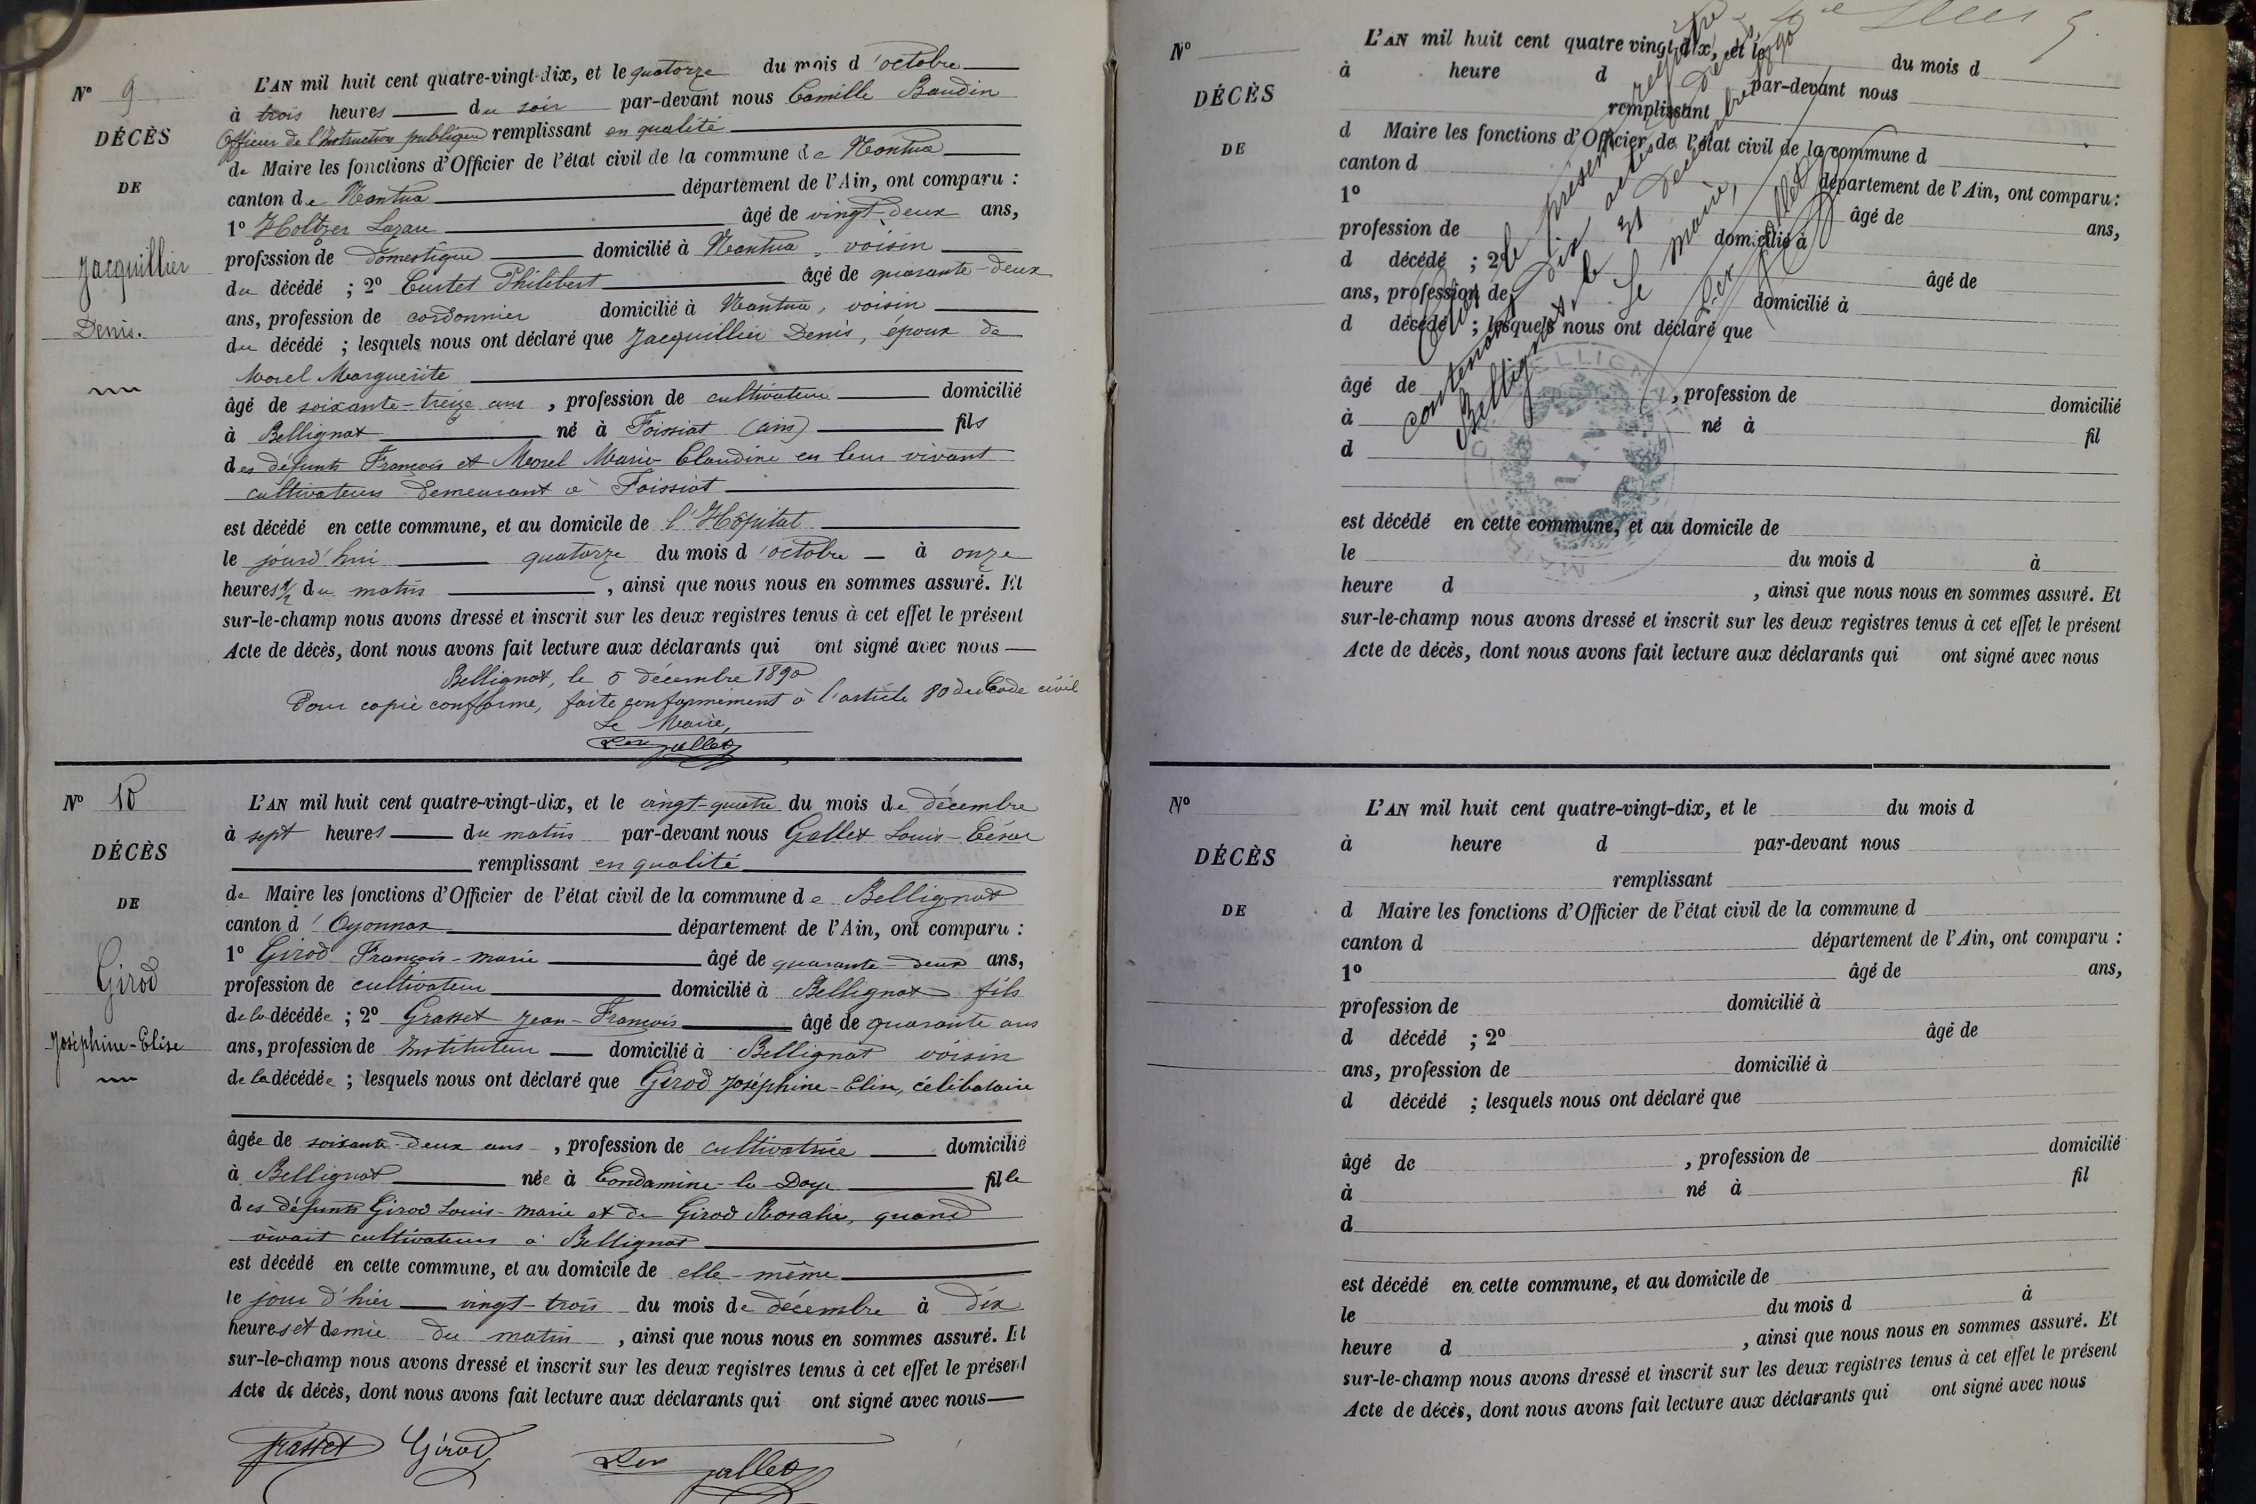 N° 9
DÉCÈS
DE
Jacquillier
Denis.
L'AN mil huit cent quatre-vingt-dix, et le quatorze du mois d'octobre
à trois heures du soir par-devant nous Camille Baudin
Officier de l'Instruction publique remplissant en qualité
de Maire les fonctions d'Officier de l'état civil de la commune de Nantua
canton de Nantua département de l'Ain, ont comparu :
1° Holtzer Lazare âgé de vingt-deux ans,
profession de domestique domicilié à Nantua, voisin
du décédé ; 2° Curtet Philibert âgé de quarante-deux
ans, profession de cordonnier domicilié à Nantua, voisin
du décédé ; lesquels nous ont déclaré que Jacquillier Denis, époux de
Morel Marguerite
âgé de soixante-treize ans, profession de cultivateur domicilié
à Bellignat né à Foissiat (ain) fils
des défunts François et Morel Marie Claudine en leur vivant
cultivateurs demeurant à Foissiat
est décédé en cette commune, et au domicile de l'Hôpital
le jourd'hui quatorze du mois d'octobre à onze
heures 1/2 du matin, ainsi que nous nous en sommes assuré. Et
sur-le-champ nous avons dressé et inscrit sur les deux registres tenus à cet effet le présent
Acte de décès, dont nous avons fait lecture aux déclarants qui ont signé avec nous
Bellignat, le 5 décembre 1890
Pour copie conforme, faite conformément à l'article 80 du Code civil
Le Maire,
Gallet
N° 10
DÉCÈS
DE
Girod
Joséphine-Elise
L'AN mil huit cent quatre-vingt-dix, et le vingt-quatre du mois de décembre
à sept heures du matin par-devant nous Gallet Louis-César
remplissant en qualité
de Maire les fonctions d'Officier de l'état civil de la commune de Bellignat
canton d'Oyonnax département de l'Ain, ont comparu :
1° Girod François-marie âgé de quarante-deux ans,
profession de cultivateur domicilié à Bellignat fils
de la décédée ; 2° Grasset Jean-François âgé de quarante ans
ans, profession de Instituteur domicilié à Bellignat voisin
de la décédée ; lesquels nous ont déclaré que Girod Joséphine-Elise, célibataire
âgée de soixante-deux ans, profession de cultivatrice domicilié
à Bellignat née à Condamine-la-Doye fille
des défunts Girod Louis-marie et de Girod Rosalie, quand
vivait cultivateurs à Bellignat
est décédé en cette commune, et au domicile de elle-même
le jour d'hier vingt-trois du mois de décembre à dix
heures et demie du matin, ainsi que nous nous en sommes assuré. Et
sur-le-champ nous avons dressé et inscrit sur les deux registres tenus à cet effet le présent
Acte de décès, dont nous avons fait lecture aux déclarants qui ont signé avec nous
Grasset Girod Gallet
N°
DÉCÈS
DE
L'AN mil huit cent quatre vingt-dix, et le du mois d
à heure d par-devant nous
remplissant
d Maire les fonctions d'Officier de l'état civil de la commune d
canton d département de l'Ain, ont comparu :
1° âgé de ans,
profession de domicilié à
d décédé ; 2° âgé de
ans, profession de domicilié à
d décédé ; lesquels nous ont déclaré que
âgé de , profession de domicilié
à né à fil
d
est décédé en cette commune, et au domicile de
le du mois d à
heure d , ainsi que nous nous en sommes assuré. Et
sur-le-champ nous avons dressé et inscrit sur les deux registres tenus à cet effet le présent
Acte de décès, dont nous avons fait lecture aux déclarants qui ont signé avec nous
le présent registre
contenant dix actes de décès
Bellignat, le 31 décembre 1890
Le maire,
Gallet
N°
DÉCÈS
DE
L'AN mil huit cent quatre-vingt-dix, et le du mois d
à heure d par-devant nous
remplissant
d Maire les fonctions d'Officier de l'état civil de la commune d
canton d département de l'Ain, ont comparu :
1° âgé de ans,
profession de domicilié à
d décédé ; 2° âgé de
ans, profession de domicilié à
d décédé ; lesquels nous ont déclaré que
âgé de , profession de domicilié
à né à fil
d
est décédé en cette commune, et au domicile de
le du mois d à
heure d , ainsi que nous nous en sommes assuré. Et
sur-le-champ nous avons dressé et inscrit sur les deux registres tenus à cet effet le présent
Acte de décès, dont nous avons fait lecture aux déclarants qui ont signé avec nous